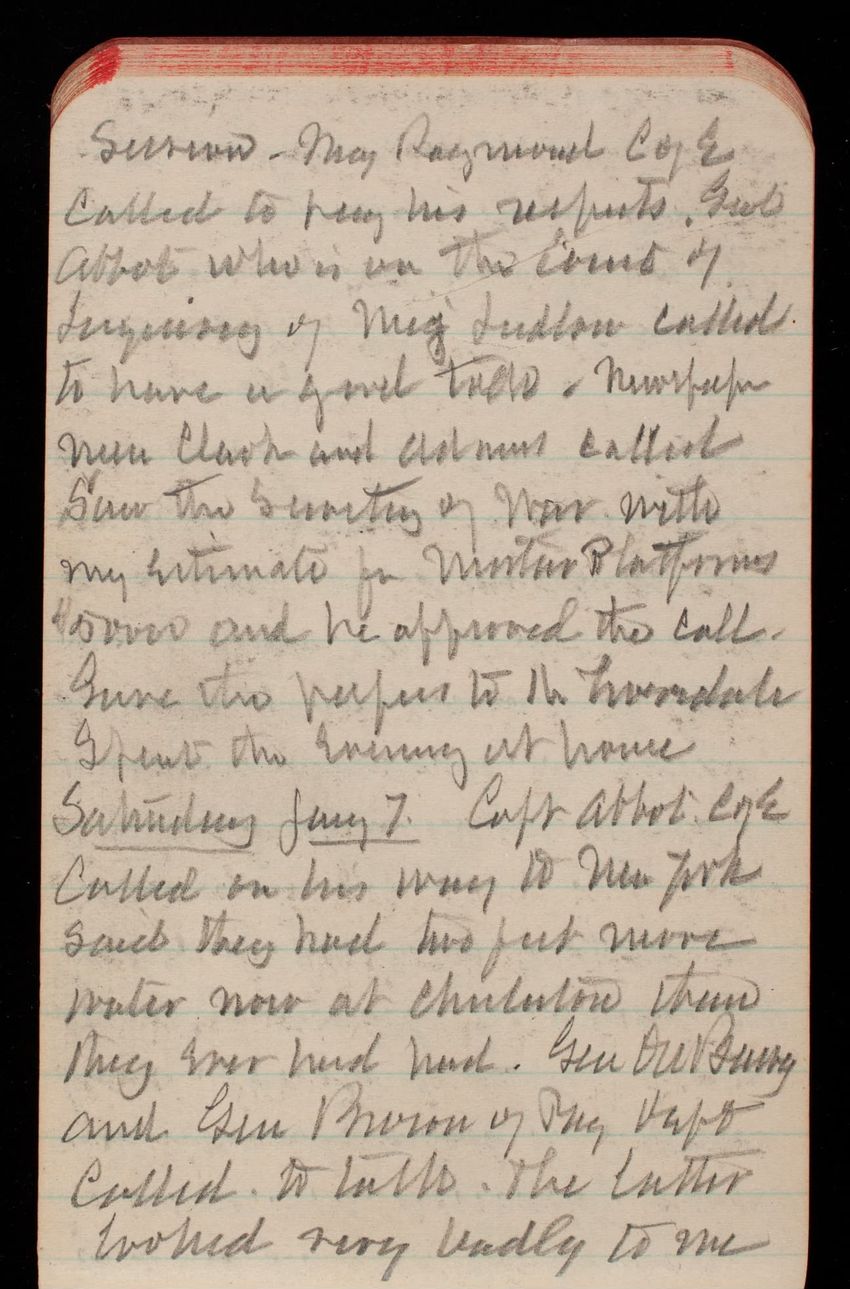 Session - Maj Raymond C of E
Called to pay his respects. Genl
Abbot who is on the Court of
Inquiry of Maj Ludlow called
to have a good talk. Newspaper
men Clark and Adams called
Saw the Secretary of War with
my Estimate for Mortar Platforms
$5000 and he approved the call.
Gave the papers to Mr
Spent the Evening at home
Saturday Jany 7. Capt Abbot. C of E
Called on his way to New York
said they had two feet more
water now at Charleston than
they Ever had had. Gen
and Gen Brown of Pay Dept
Called. to talk. The latter
looked very badly to me